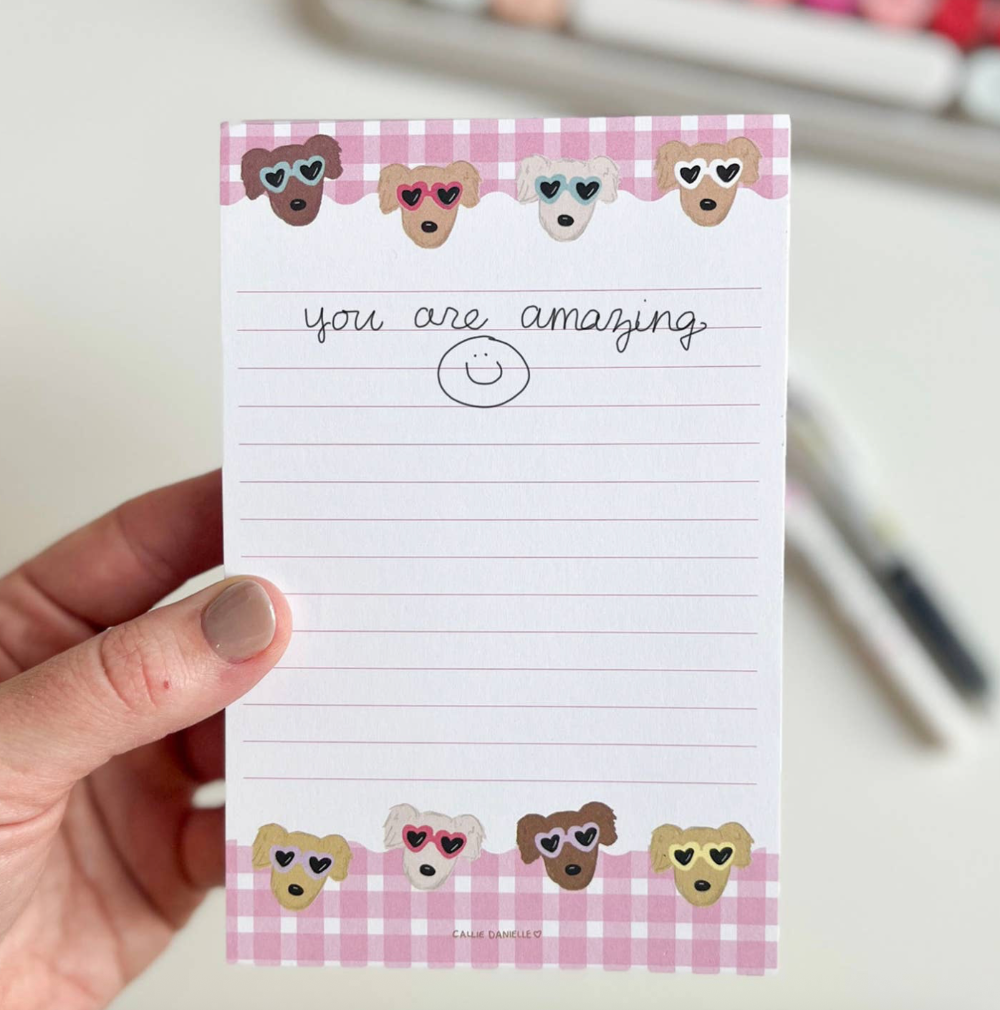 you are amazing
CALLIE DANIELLE♡